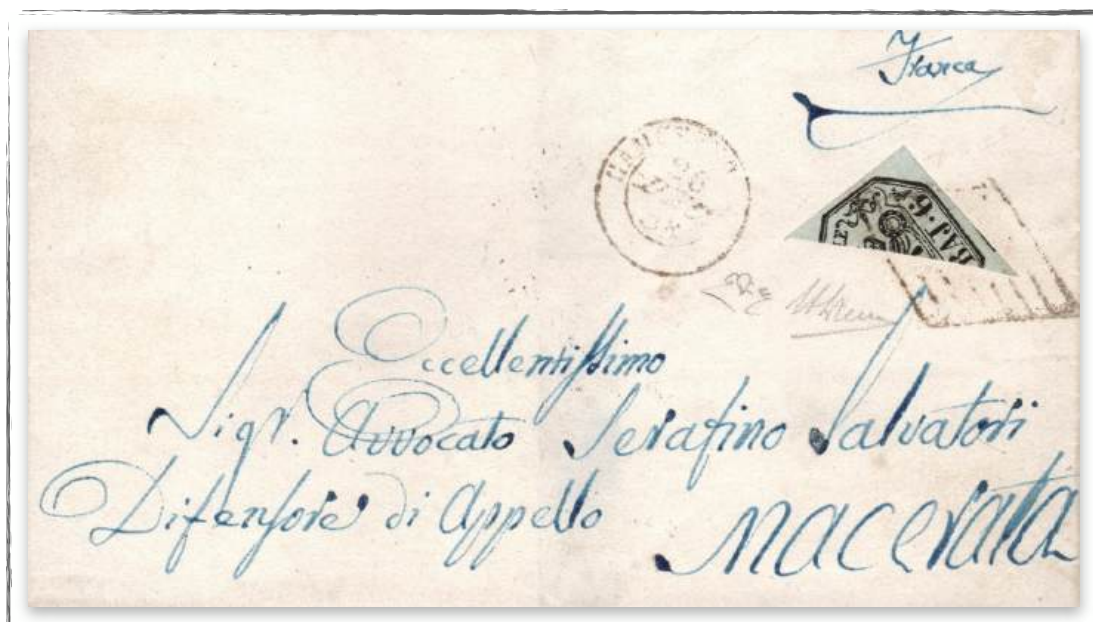 Franca
BAJ. 6.
Eccellentissimo
Sigr. Avvocato Serafino Salvatori
Difensore di Appello
Macerata